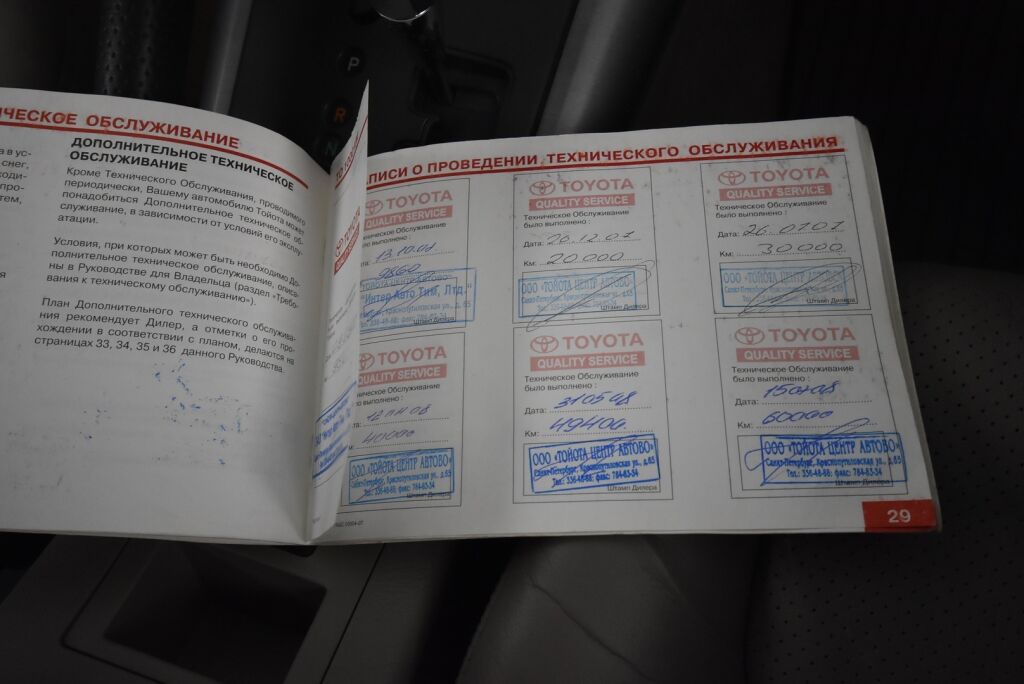 P
R
N
ЧЕСКОЕ ОБСЛУЖИВАНИЕ
ДОПОЛНИТЕЛЬНОЕ ТЕХНИЧЕСКОЕ
ОБСЛУЖИВАНИЕ
Кроме Технического Обслуживания, проводимого
периодически, Вашему автомобилю Тойота может
понадобиться Дополнительное техническое об-
служивание, в зависимости от условий его эксплу-
атации.
Условия, при которых может быть необходимо До-
полнительное техническое обслуживание, описа-
ны в Руководстве для Владельца (раздел «Требо-
вания к техническому обслуживанию»).
План Дополнительного технического обслужива-
ния рекомендует Дилер, а отметки о его про-
хождении в соответствии с планом, делаются на
страницах 33, 34, 35 и 36 данного Руководства.
АПИСИ О ПРОВЕДЕНИИ ТЕХНИЧЕСКОГО ОБСЛУЖИВАНИЯ
TOYOTA
QUALITY SERVICE
ническое Обслуживание
выполнено :
9860
"Интер Авто Тим, Лтд."
TOYOTA
QUALITY SERVICE
Техническое Обслуживание
было выполнено :
Дата: 26.12.07
Км: 20000
ООО «ТОЙОТА ЦЕНТР АВТОВО»
Штамп Дилера
TOYOTA
QUALITY SERVICE
Техническое Обслуживание
было выполнено :
Дата: 26.07.07
Км: 30000
ООО «ТОЙОТА ЦЕНТР АВТОВО»
Санкт-Петербург, Краснопутиловская ул., д.65
Тел.: 336-48-88; факс: 784-83-34
Штамп Дилера
TOYOTA
QUALITY SERVICE
ническое Обслуживание
о выполнено :
40000
ООО «ТОЙОТА ЦЕНТР АВТОВО»
Санкт-Петербург, Краснопутиловская ул., д.65
Тел.: 336-48-88; факс: 784-83-34
Штамп Дилера
TOYOTA
QUALITY SERVICE
Техническое Обслуживание
было выполнено :
Дата: 310508
Км: 49400
ООО «ТОЙОТА ЦЕНТР АВТОВО»
Санкт-Петербург, Краснопутиловская ул., д.65
Тел.: 336-48-88; факс: 784-83-34
Штамп Дилера
TOYOTA
QUALITY SERVICE
Техническое Обслуживание
было выполнено :
Дата:
Км: 60000
ООО «ТОЙОТА ЦЕНТР АВТОВО»
Санкт-Петербург, Краснопутиловская ул., д.65
Тел.: 336-48-88; факс: 784-83-34
Штамп Дилера
29